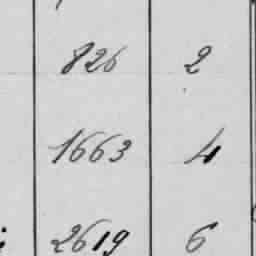 826 2
1663 4
2619 6